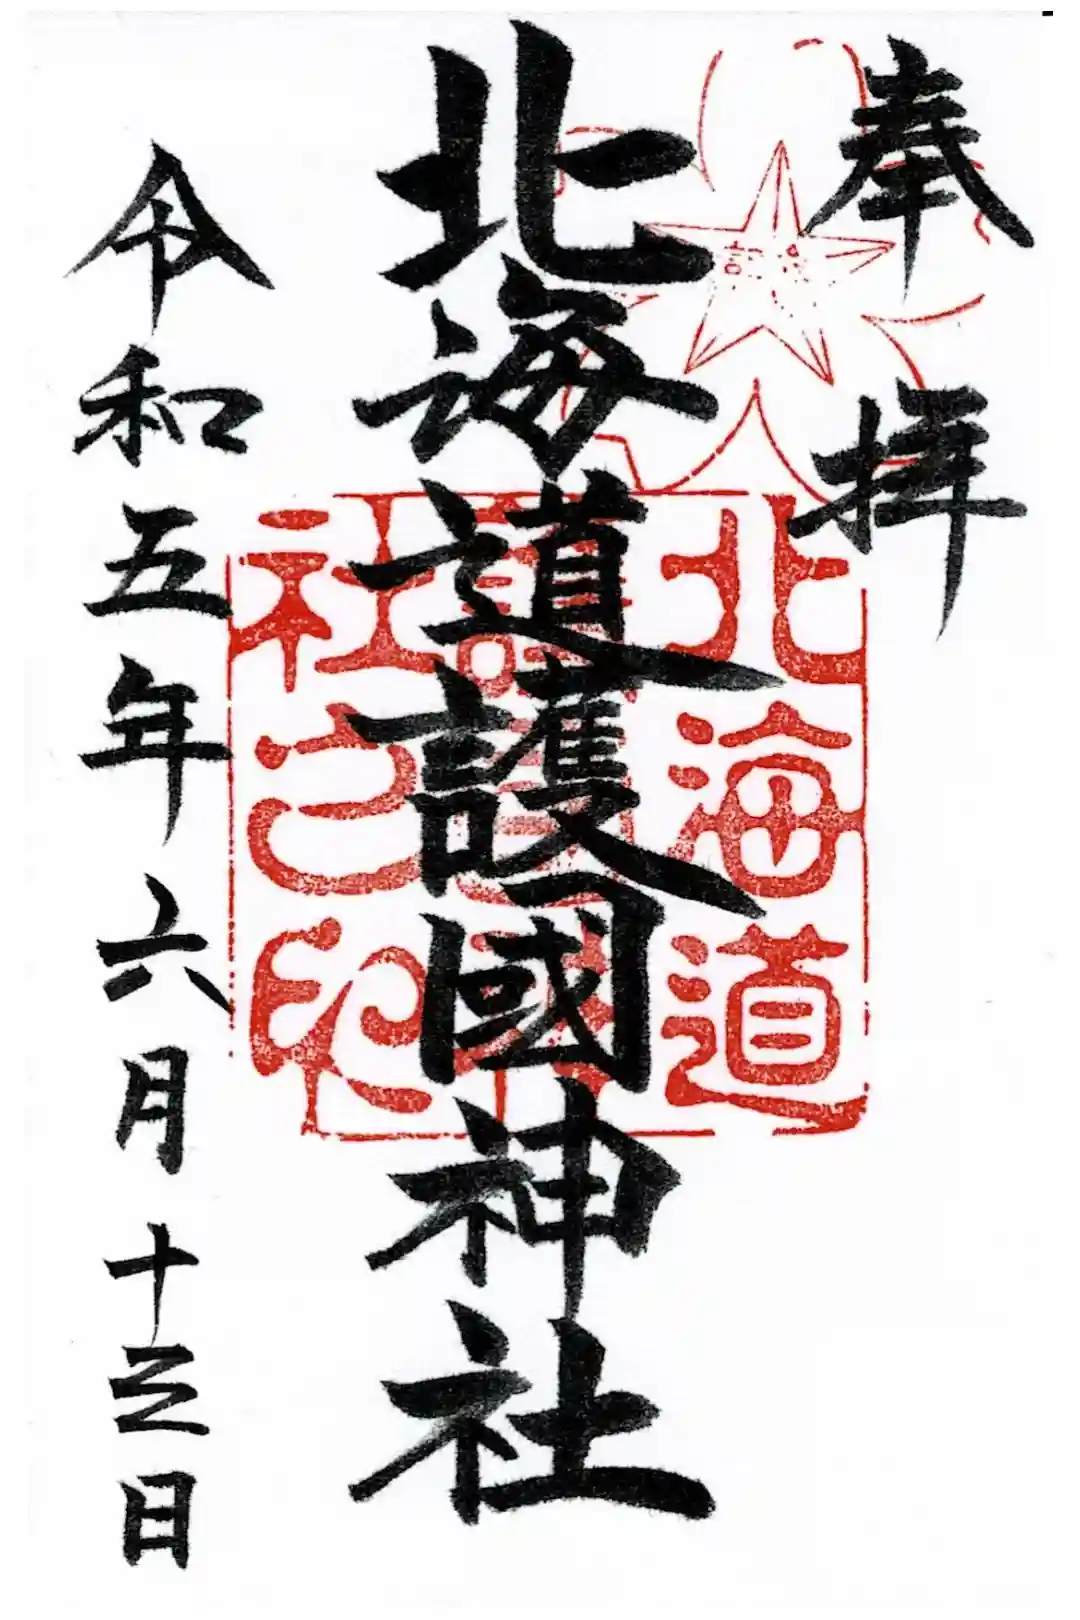 奉拝
北海道護國神社
北海道
護國神
社之印
令和五年六月十三日